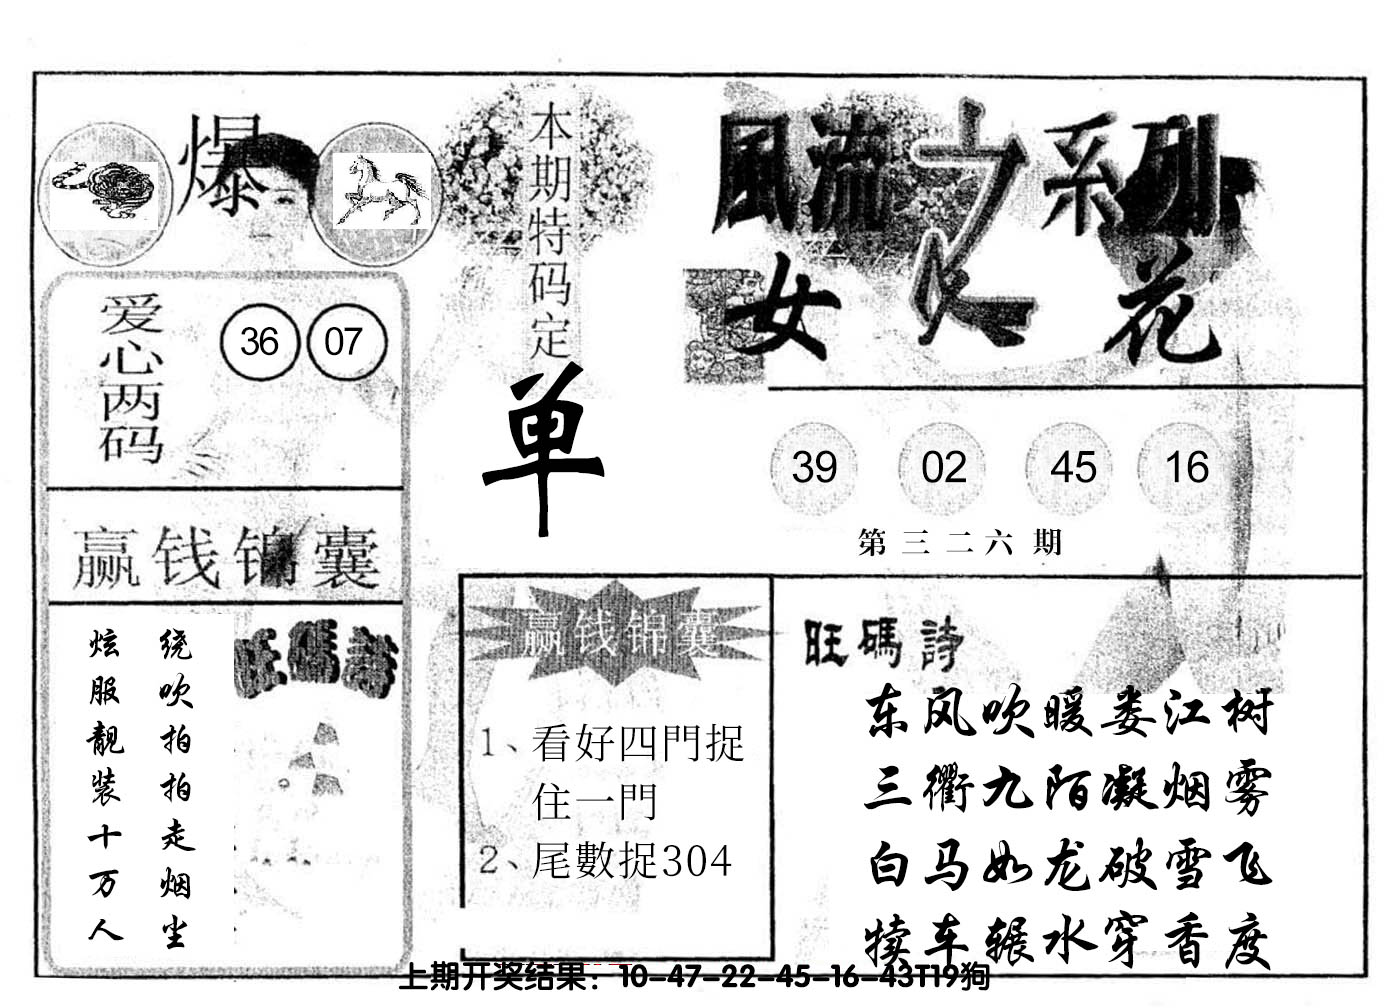 爆
本期特码定
单
風流之系列
女人花
爱心两码
36 07
39 02 45 16
第三二六期
赢钱锦囊
绕吹拍拍走烟尘
炫服靓装十万人
旺碼詩
赢钱锦囊
1、看好四門捉
住一門
2、尾數捉304
旺碼詩
东风吹暖娄江树
三衢九陌凝烟雾
白马如龙破雪飞
犊车辗水穿香度
上期开奖结果：10-47-22-45-16-43T19狗